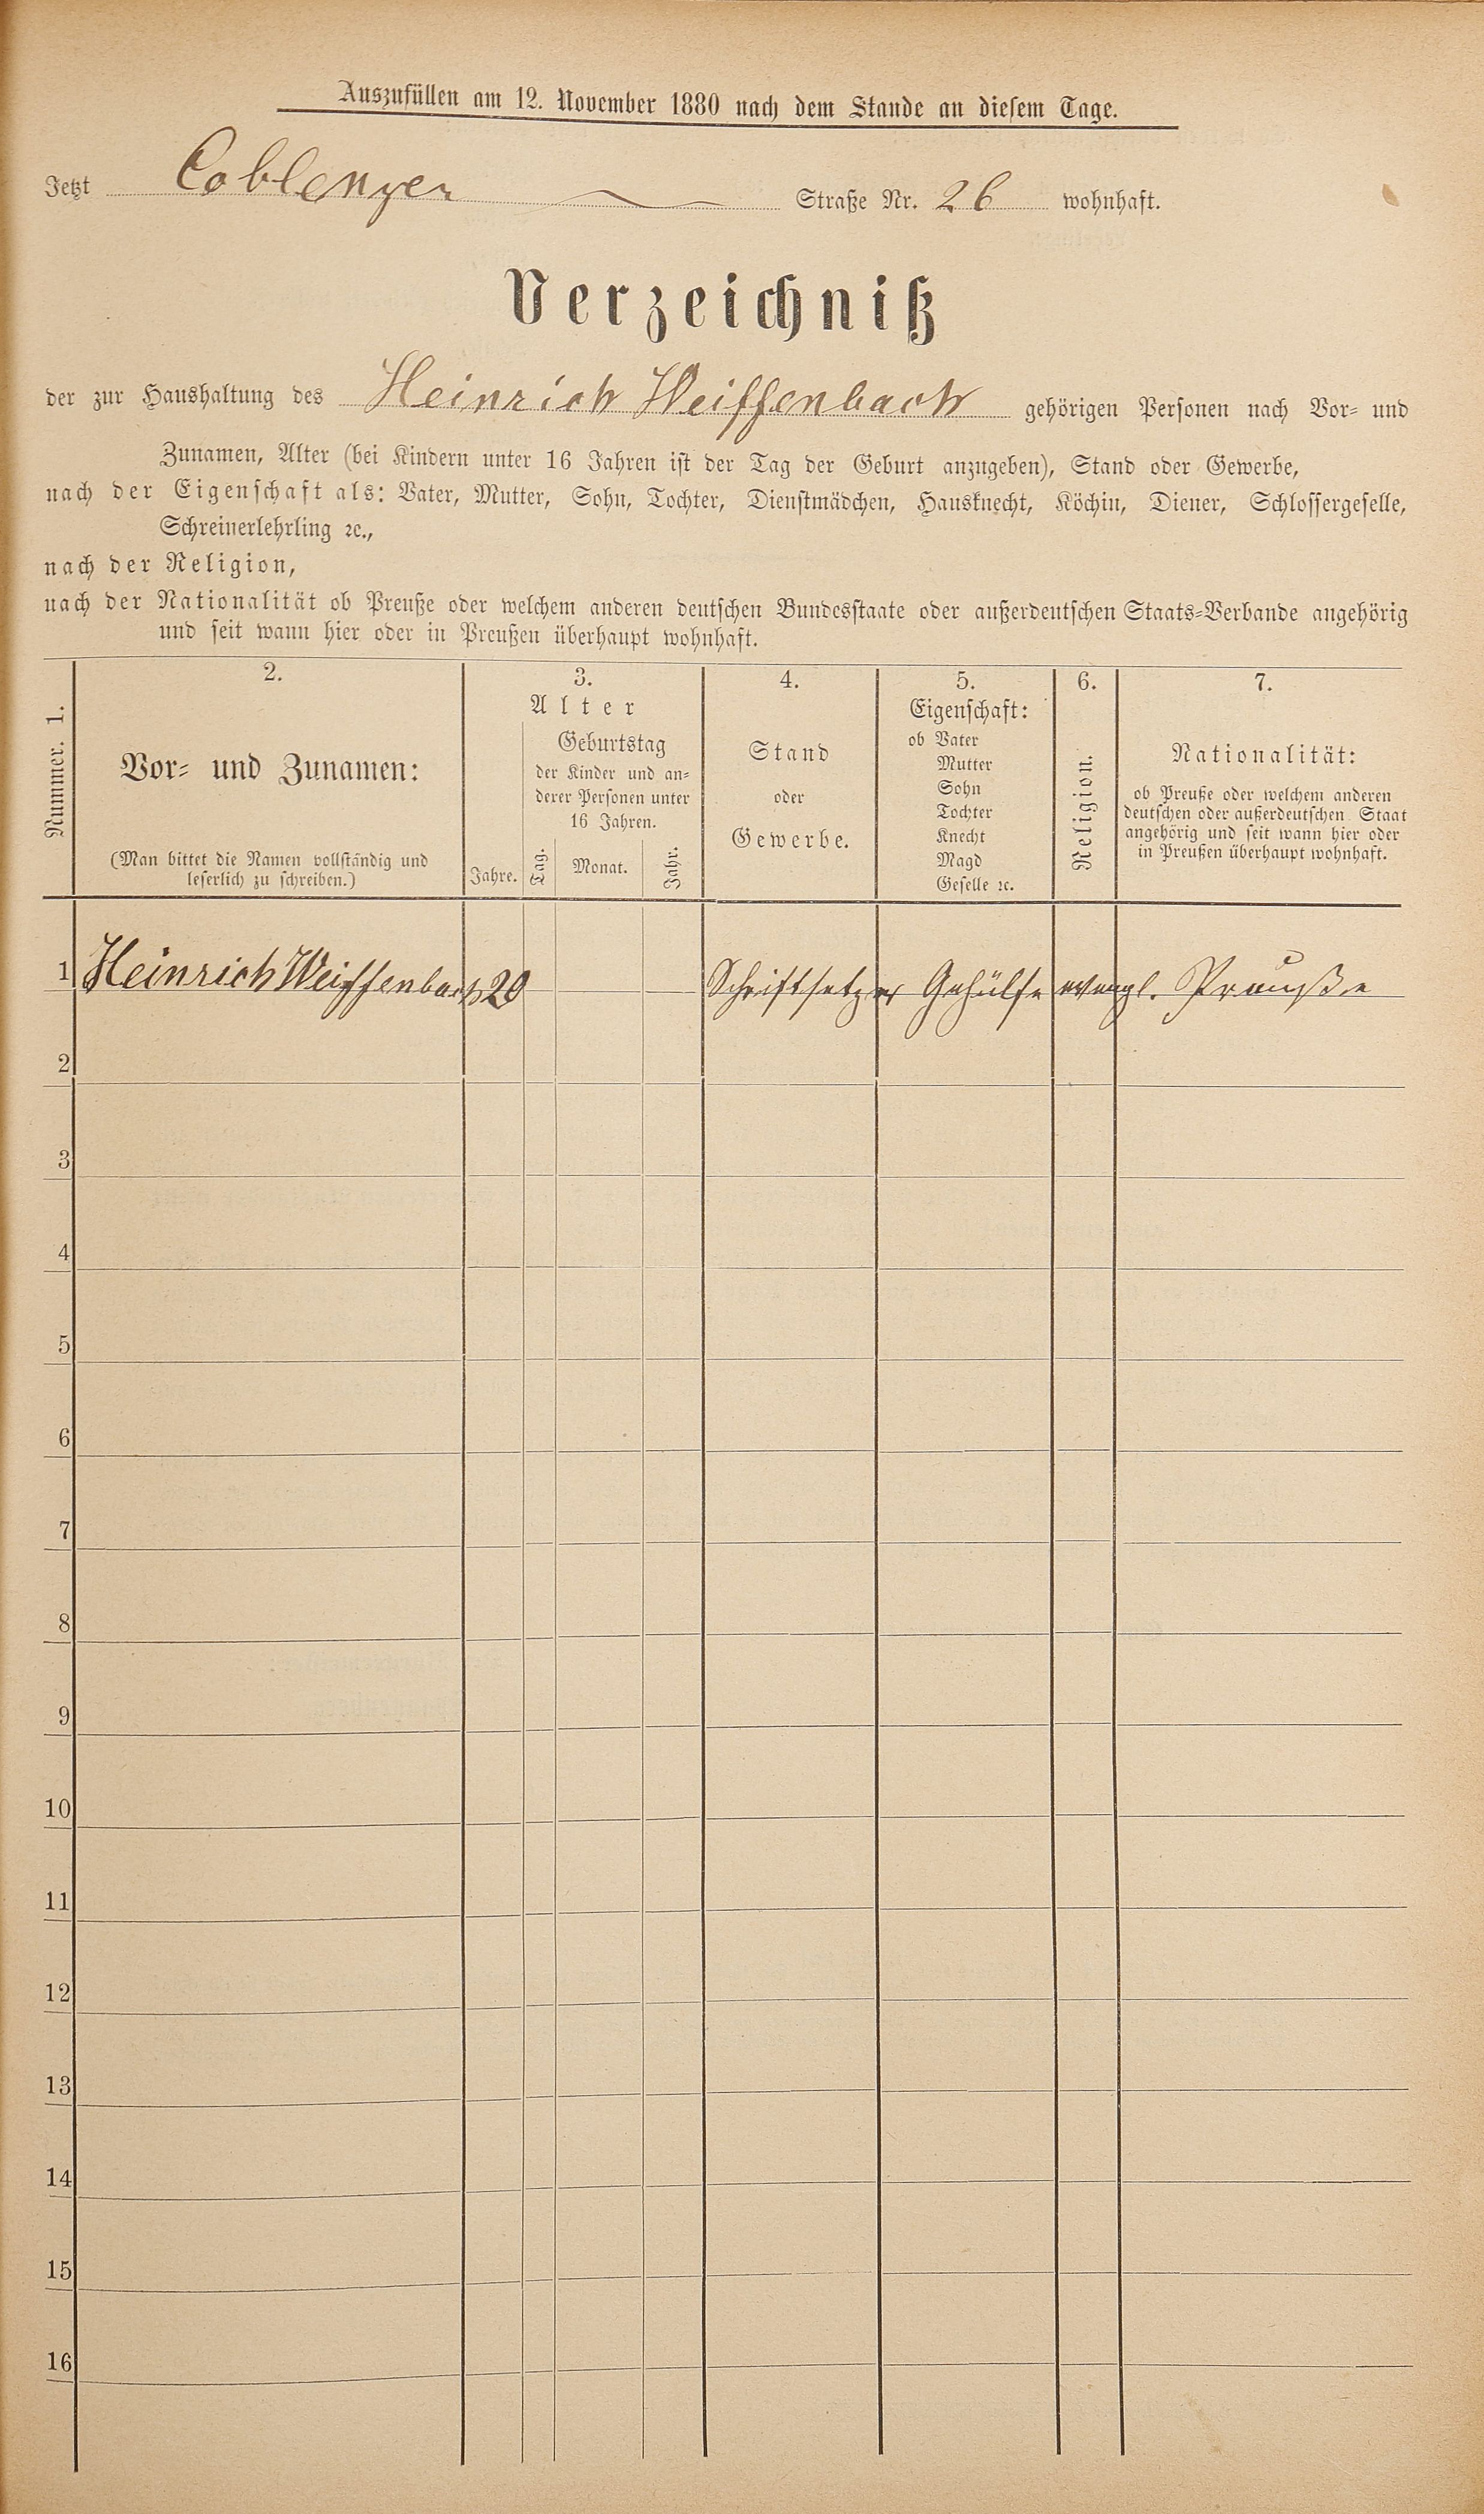 Auszufüllen am 12. November 1880 nach dem Stande an diesem Tage.
Jetzt Coblenzer Straße Nr. 26 wohnhaft.
Verzeichniß
der zur Haushaltung des Heinrich Weiffenbach gehörigen Personen nach Vor- und
Zunamen, Alter (bei Kindern unter 16 Jahren ist der Tag der Geburt anzugeben), Stand oder Gewerbe,
nach der Eigenschaft als: Vater, Mutter, Sohn, Tochter, Dienstmädchen, Hausknecht, Köchin, Diener, Schlossergeselle,
Schreinerlehrling ꝛc.,
nach der Religion,
nach der Nationalität ob Preuße oder welchem anderen deutschen Bundesstaate oder außerdeutschen Staats-Verbande angehörig
und seit wann hier oder in Preußen überhaupt wohnhaft.
Nummer. 1.
2.
Vor- und Zunamen:
(Man bittet die Namen vollständig und
leserlich zu schreiben.)
3.
Alter
Jahre.
Geburtstag
der Kinder und an-
derer Personen unter
16 Jahren.
Tag.
Monat.
Jahr.
4.
Stand
oder
Gewerbe.
5.
Eigenschaft:
ob Vater
Mutter
Sohn
Tochter
Knecht
Magd
Geselle ꝛc.
6.
Religion.
7.
Nationalität:
ob Preuße oder welchem anderen
deutschen oder außerdeutschen Staat
angehörig und seit wann hier oder
in Preußen überhaupt wohnhaft.
1 Heinrich Weiffenbach 20 Schriftsetzer Gehülfe evangl. Preuße
2
3
4
5
6
7
8
9
10
11
12
13
14
15
16